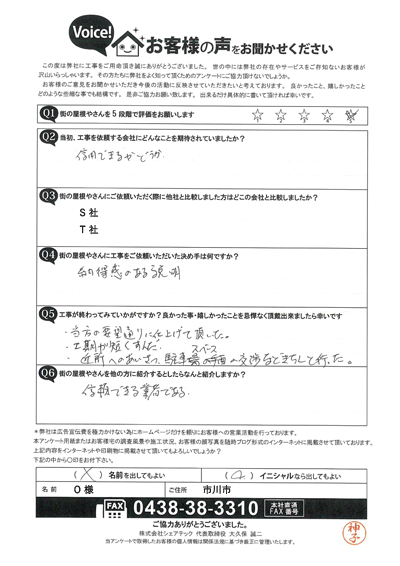 Voice!
お客様の声をお聞かせください
この度は弊社に工事をご用命頂き誠にありがとうございました。世の中には弊社の存在やサービスをご存知ないお客様が
沢山いらっしゃいます。その方たちに弊社をよく知って頂くためのアンケートにご協力頂けないでしょうか。
お客様のご意見をお聞かせいただき今後の活動に反映させていただきたいと考えております。良かったこと、嬉しかったこと
どのような些細な事でも結構です。是非ご協力お願い致します。出来るだけ具体的に書いて頂ければ幸いです。
Q1 街の屋根やさんを5段階で評価をお願いします ☆ ☆ ☆ ☆ ☆
Q2 当初、工事を依頼する会社にどんなことを期待されていましたか?
信用できるかどうか
Q3 街の屋根やさんにご依頼いただく際に他社と比較しました方はどこの会社と比較しましたか?
S社
T社
Q4 街の屋根やさんに工事をご依頼いただいた決め手は何ですか?
納得感のある説明
Q5 工事が終わってみていかがですか?良かった事・嬉しかったことを忌憚なく頂戴出来ましたら幸いです
・当方の要望通りに仕上げて頂した。
・工期が短くすんだ。
・近所へのあいさつ、駐車スペースの交渉などきちんと行った。
Q6 街の屋根やさんを他の方に紹介するとしたらなんと紹介しますか?
信頼できる業者である
*弊社は広告宣伝費を極力かけない為にホームページだけを頼りにお客様への営業活動を行っております。
本アンケート用紙またはお客様宅の調査風景や施工状況、お客様の顔写真を随時ブログ形式のインターネットに掲載させて頂いております。
上記内容をインターネットや印刷物に掲載させて頂いてもよろしいでしょうか?
下記の中から〇印をお付け下さい。
(×)名前を出してもよい (○)イニシャルなら出してもよい
名前 O様 ご住所 市川市
FAX 0438-38-3310 本社直通 FAX番号
ご協力ありがとうございました。
株式会社シェアテック 代表取締役 大久保 誠二
当アンケートで取得したお客様の個人情報は関係法規に基づき厳正に管理いたします。
神子